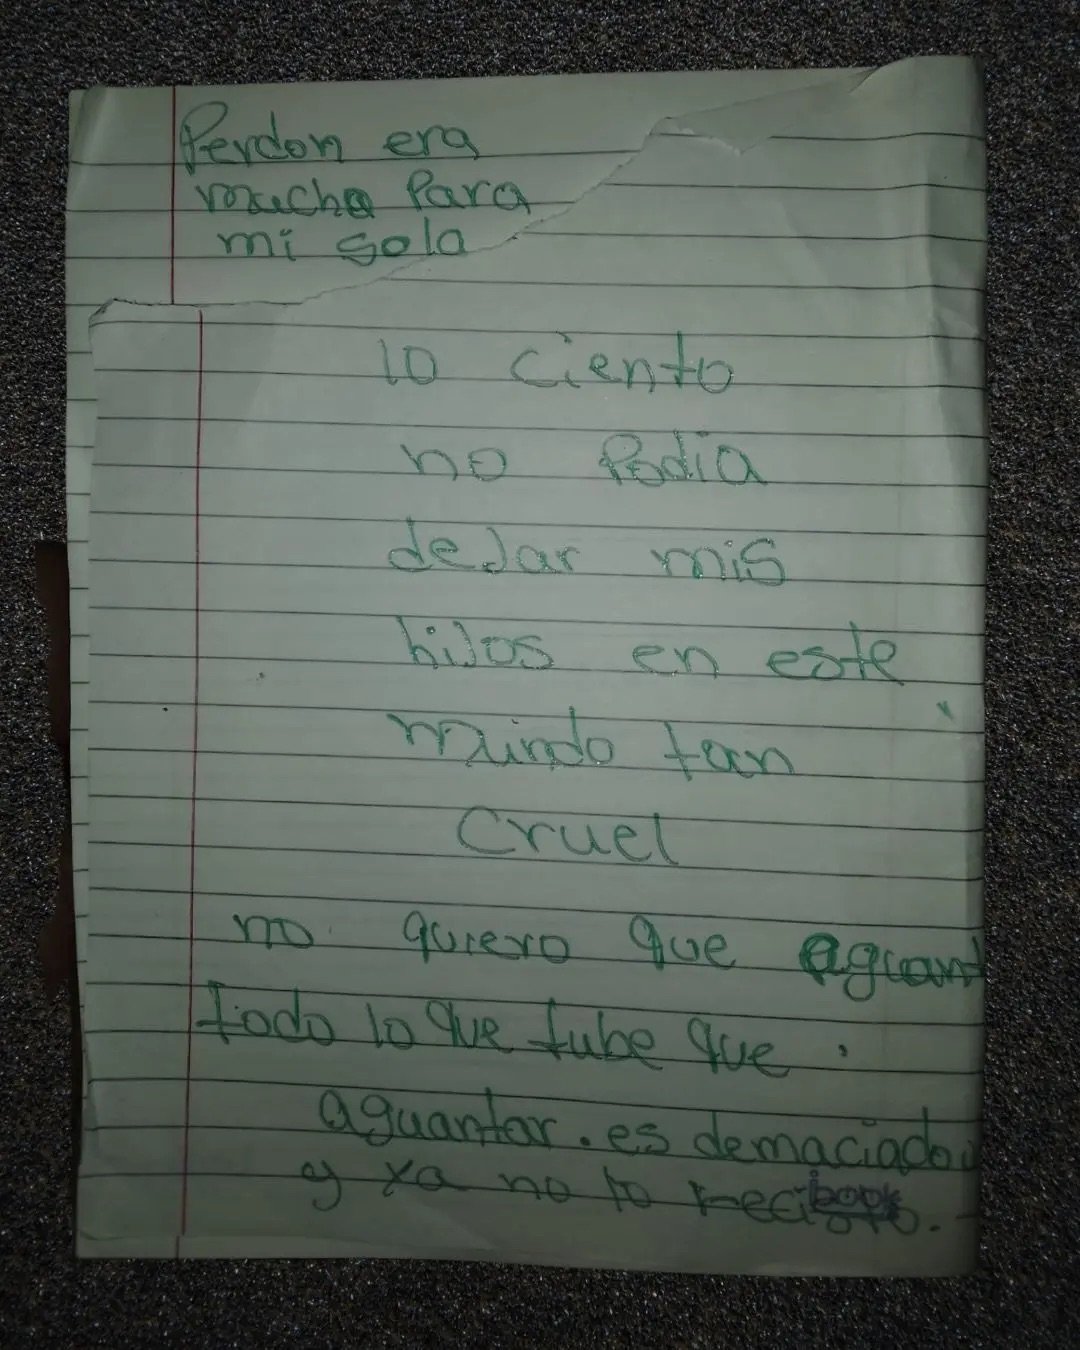 Perdon era
mucho Para
mi sola
lo ciento
no Podia
dejar mis
hijos en este
mundo tan
Cruel
no quiero que aguant
todo lo que tube que
aguantar. es demaciado
y ya no lo